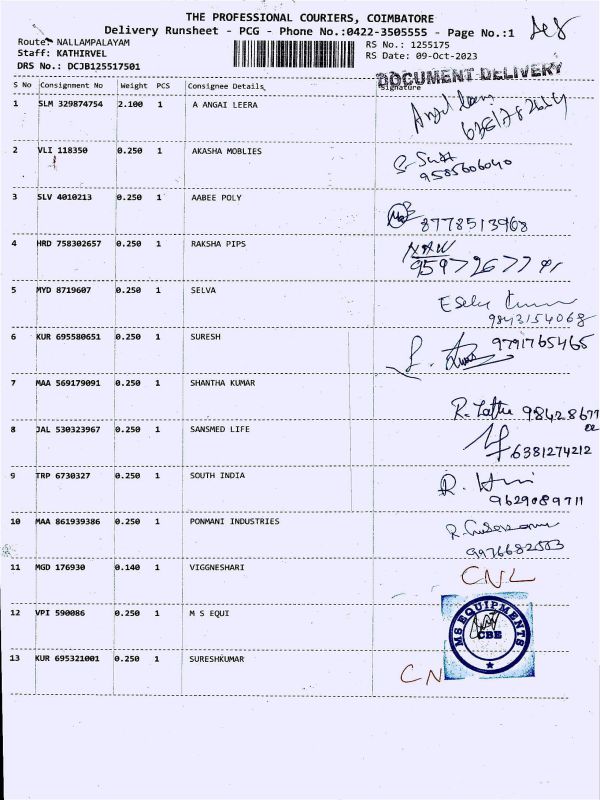 THE PROFESSIONAL COURIERS, COIMBATORE
Delivery Runsheet - PCG - Phone No.:0422-3505555 - Page No.:1
Route: NALLAMPALAYAM RS No.: 1255175
Staff: KATHIRVEL RS Date: 09-Oct-2023
DRS No.: DCJB125517501 DOCUMENT DELIVERY
S No Consignment No Weight PCS Consignee Details Signature
1 SLM 329874754 2.100 1 A ANGAI LEERA
2 VLI 118350 0.250 1 AKASHA MOBLIES
9585606040
3 SLV 4010213 0.250 1 AABEE POLY
8778513968
4 HRD 758302657 0.250 1 RAKSHA PIPS
5 MYD 8719607 0.250 1 SELVA
9843154068
6 KUR 695580651 0.250 1 SURESH 9791765465
7 MAA 569179091 0.250 1 SHANTHA KUMAR
8 JAL 530323967 0.250 1 SANSMED LIFE
6381274212
9 TRP 6730327 0.250 1 SOUTH INDIA
9629089711
10 MAA 861939386 0.250 1 PONMANI INDUSTRIES
9976682553
11 MGD 176930 0.140 1 VIGGNESHARI CNL
12 VPI 590086 0.250 1 M S EQUI
MS EQUIPMENTS
CBE
13 KUR 695321001 0.250 1 SURESHKUMAR
CN